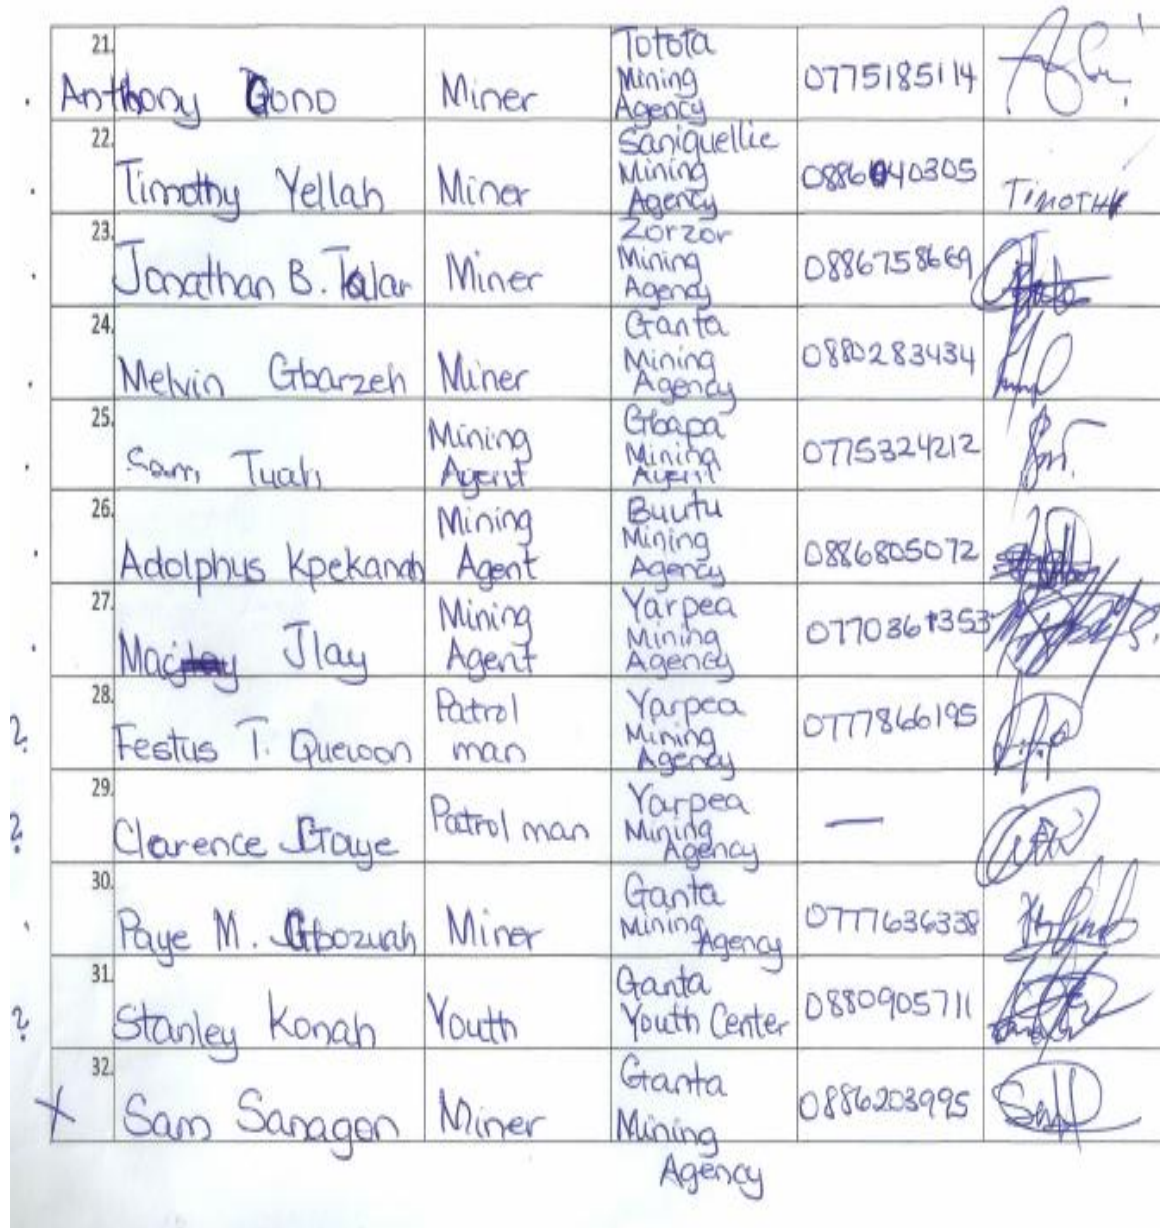 21.
Anthony Gono Miner Totota Mining Agency 0775185114
22.
Timothy Yellah Miner Saniquellie Mining Agency 0886040305 TIMOTHY
23.
Jonathan B. Talar Miner Zorzor Mining Agency 0886758669
24.
Melvin Gbarzeh Miner Ganta Mining Agency 0880283434
25.
Sam Tuah Mining Agent Gbapa Mining Agent 0775324212
26.
Adolphus Kpekanah Mining Agent Buutu Mining Agency 0886805072
27.
Jlay Mining Agent Yarpea Mining Agency
28.
? Festus T. Quewon Patrol man Yarpea Mining Agency 0777866195
29.
? Clarence Gaye Patrol man Yarpea Mining Agency —
30.
Paye M. Gbozuah Miner Ganta Mining Agency 0777636338
31.
? Stanley Konah Youth Ganta Youth Center 0880905711
32.
X Sam Sanagon Miner Ganta Mining Agency 0886203995